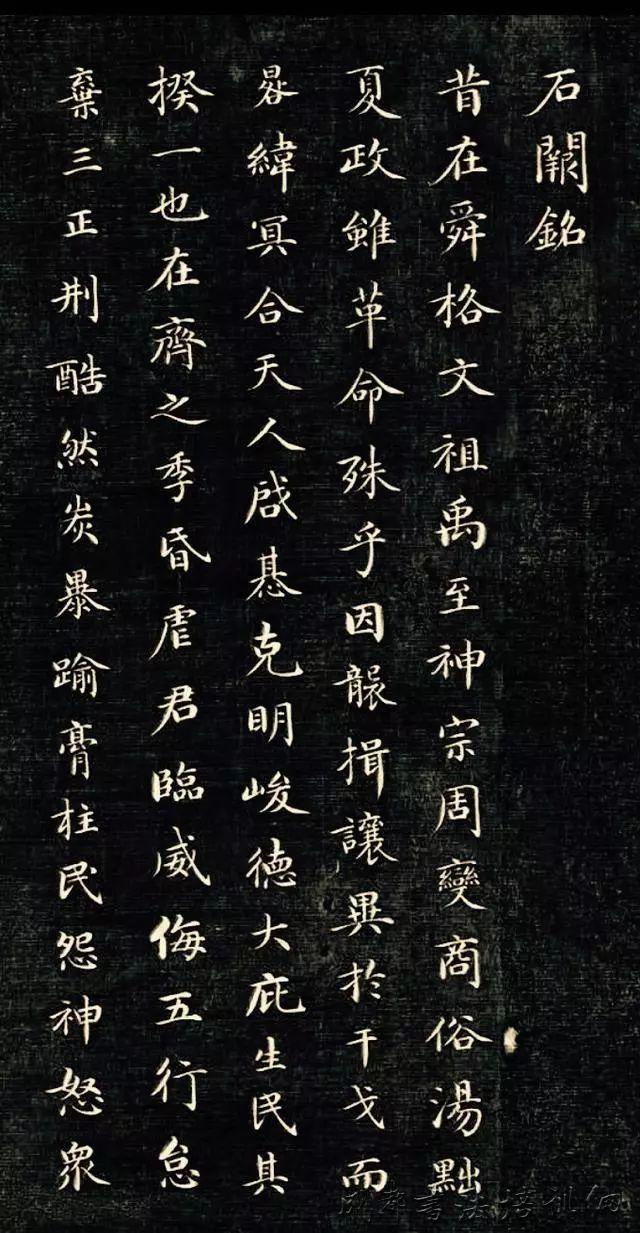 石闕銘
昔在舜格文祖禹至神宗周變商俗湯黜
夏政雖革命殊乎因襲揖讓異於干戈而
晷緯冥合天人啟惎克明峻德大庇生民其
揆一也在齊之季昏虐君臨威侮五行怠
棄三正刑酷然炭暴踰膏柱民怨神怒眾
书法培训